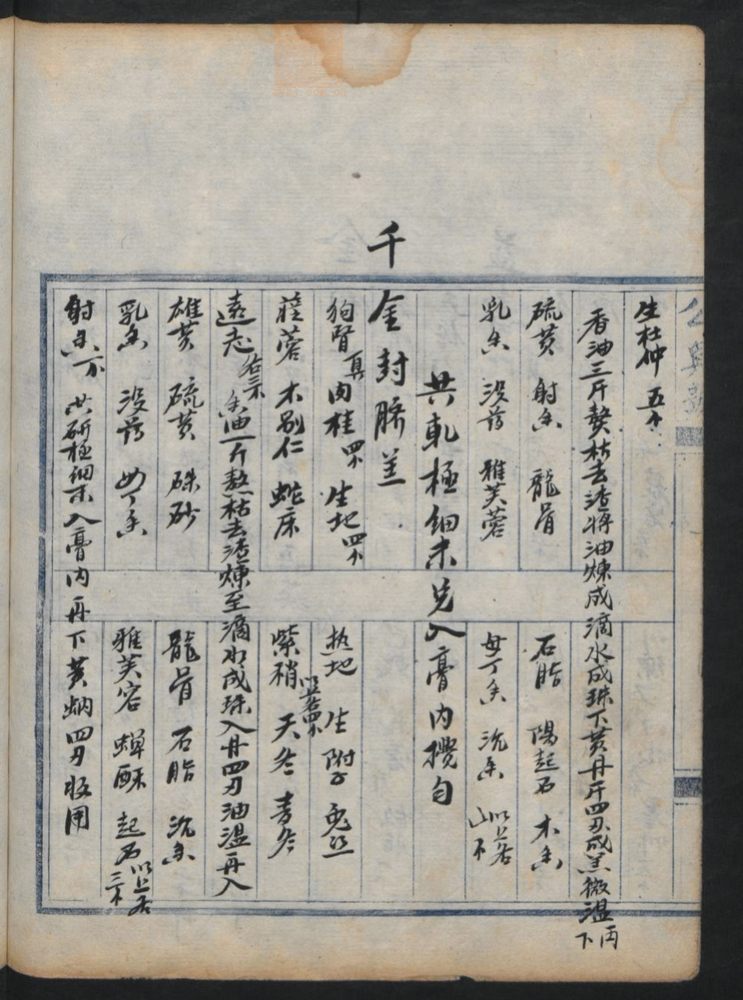 生杜仲 五个
香油三斤熬枯去渣將油煉成滴水成珠下黄丹斤四刄成羔微温再下
硫黄 射香 龍骨 石脂 陽起石 木香
乳香 没药 雅芙蓉 母丁香 沉香 以上各
共軋極細末兑入膏内攪匀
千金封臍羔
狗腎 真肉桂 生地 熟地 生附子 兎丝
蓯蓉 木别仁 蛇床 紫稍 天冬 麦冬 以上各四个
遠志 右三个 香油一斤熬枯去渣煉至滴水成珠入丹四刄油温再入
雄黄 硫黄 硃砂 龍骨 石脂 沉香
乳香 没药 母丁香 雅芙容 蟬酥 起石 以上各三个
射香 共研極細末入膏内再下黄蜡四刄收用